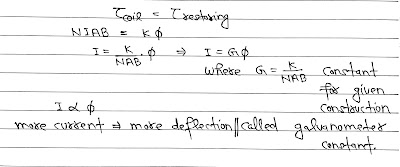 τcoil = τrestoring
NIAB = K φ
I = K/NAB · φ ⇒ I = Gφ
where G = K/NAB constant
for given
construction
I α φ
more current ⇒ more deflection // called galvanometer
constant.